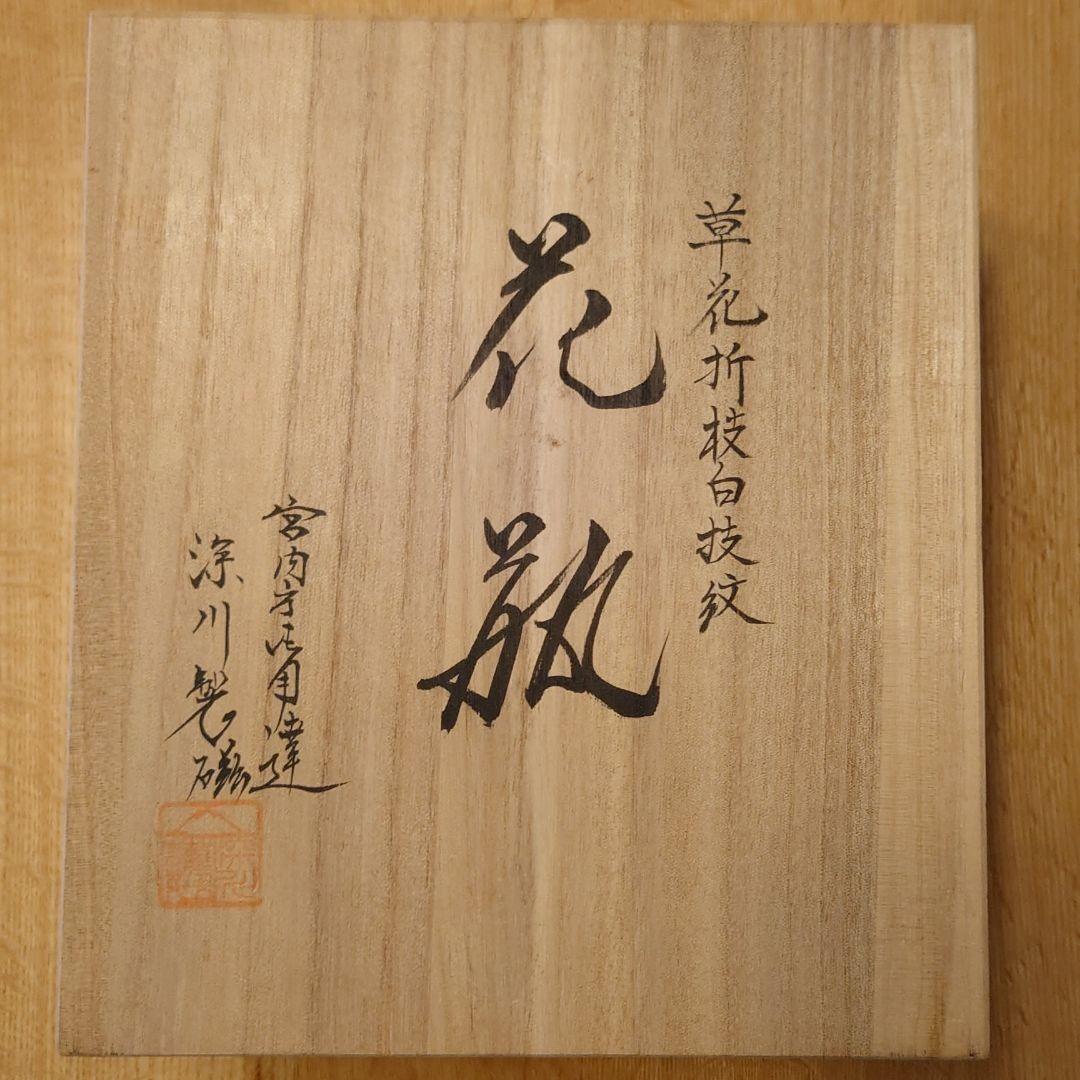 草花折枝白技紋
花瓶
宮内庁御用達
深川製磁